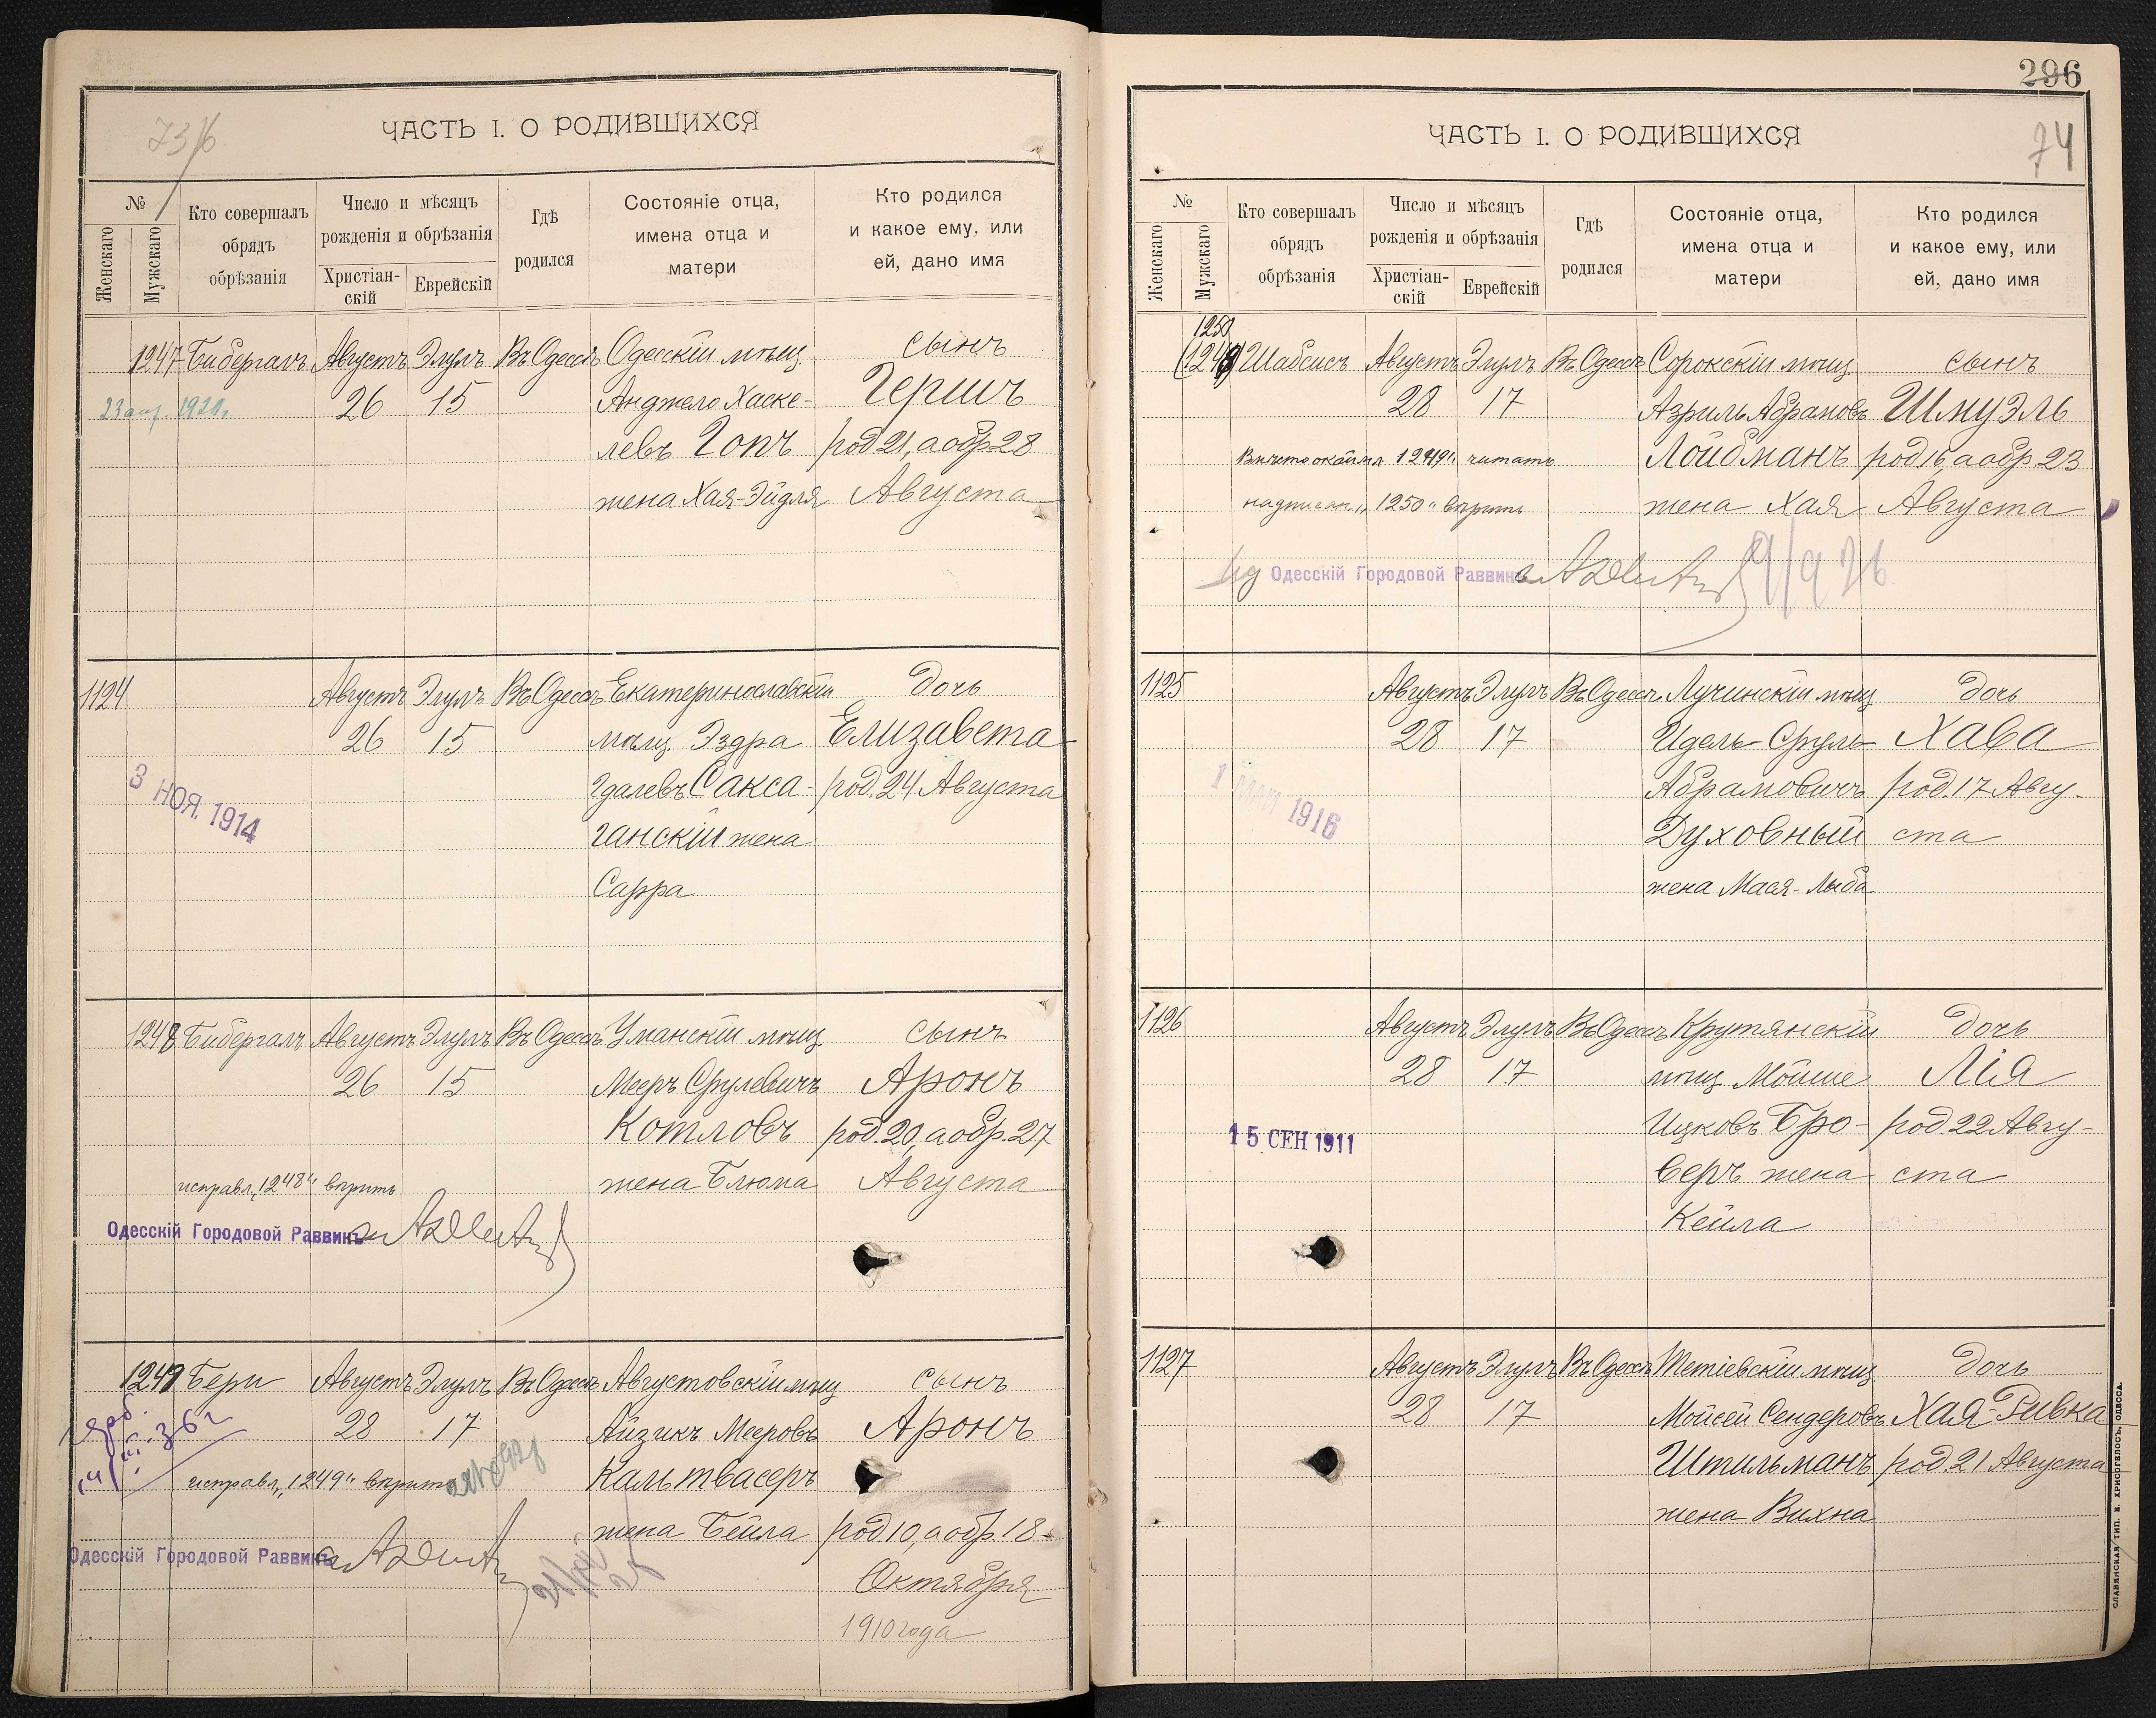 73/6
ЧАСТЬ I. О РОДИВШИХСЯ
№
Женскаго
Мужскаго
Кто совершалъ
обрядъ
обрѣзанія
Число и мѣсяцъ
рожденія и обрѣзанія
Христіан-
скій
Еврейскій
Гдѣ
родился
Состояніе отца,
имена отца и
матери
Кто родился
и какое ему, или
ей, дано имя
1247 Бибергалъ Августъ Элулъ Въ Одессѣ Одесскій мѣщ. сынъ
26 15 Анджело Хаске- Гершъ
левъ Гопъ род. 21, а обр. 28
жена Хая-Эйдля Августа
1124 Августъ Элулъ Въ Одессѣ Екатеринославскій дочь
26 15 мѣщ. Эздра Елизавета
Гдалевъ Сакса- род. 24 Августа
ганскій жена
Сарра
3 НОЯ. 1914
1248 Бибергалъ Августъ Элулъ Въ Одессѣ Уманскій мѣщ. сынъ
26 15 Мееръ Срулевичъ Аронъ
Котловъ род. 20, а обр. 27
исправл. „1248“ вѣрить жена Блюма Августа
Одесскій Городовой Раввинъ
1249 Бери Августъ Элулъ Въ Одессѣ Августовскій мѣщ. сынъ
28 17 Айзикъ Мееровъ Аронъ
исправл. „1249“ вѣрить Кальтвасеръ
жена Бейла род. 10, а обр. 18
Одесскій Городовой Раввинъ
Октября
1910 года
296
74
ЧАСТЬ I. О РОДИВШИХСЯ
№
Женскаго
Мужскаго
Кто совершалъ
обрядъ
обрѣзанія
Число и мѣсяцъ
рожденія и обрѣзанія
Христіан-
скій
Еврейскій
Гдѣ
родился
Состояніе отца,
имена отца и
матери
Кто родился
и какое ему, или
ей, дано имя
1250
(1249) Шабсисъ Августъ Элулъ Въ Одессѣ Сорокскій мѣщ. сынъ
28 17 Азриль Абрамовъ Шмуэль
1249“ читать Лойбманъ род. 16, а обр. 23
надписан. „1250“ вѣрить жена Хая Августа
Одесскій Городовой Раввинъ
1125 Августъ Элулъ Въ Одессѣ Лучинскій мѣщ. дочь
28 17 Идель-Сруль Хава
Абрамовичъ род. 17 Авгу-
Духовный ста
жена Мася-Лыба
1 МАЯ 1916
1126 Августъ Элулъ Въ Одессѣ Крутянскій дочь
28 17 мѣщ. Мойше Лія
15 СЕН 1911 Ицковъ Бро- род. 22 Авгу-
веръ жена ста
Кейла
1127 Августъ Элулъ Въ Одессѣ Тетіевскій мѣщ. дочь
28 17 Мойсей Сендеровъ Хая-Ривка
Штильманъ род. 21 Августа
жена Вихна
СЛАВЯНСКАЯ ТИП. Н. ХРИСОГЕЛОСЪ, ОДЕССА.